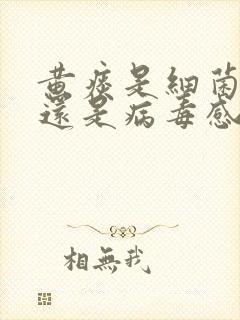 黄痰是細菌
還是病毒感
相無我